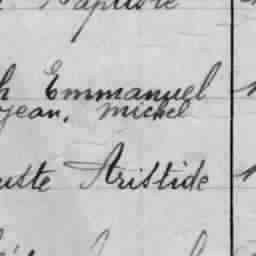 Baptiste
h Emmanuel
Jean, Michel
uste Aristide